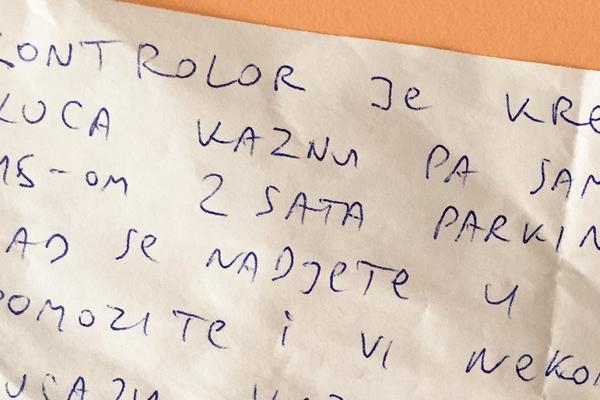 KONTROLOR JE KRE
KUCA KAZNU PA SAM
MS-OM 2 SATA PARKIN
AD SE NADJETE U
POMOZITE i Vi NEKO